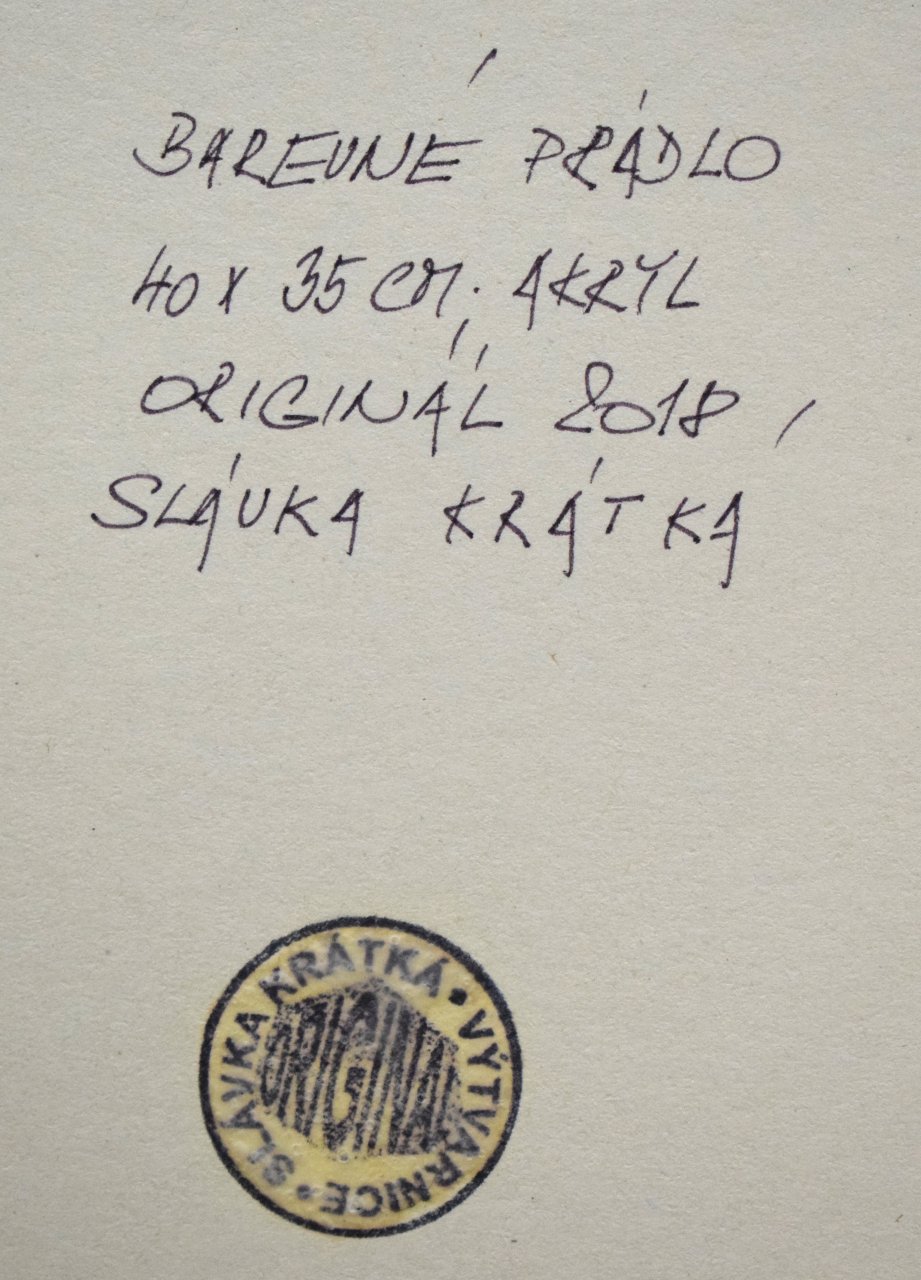 BAREVNÉ PRÁDLO
40 X 35 CM, AKRYL
ORIGINÁL 2018
SLÁVKA KRÁTKÁ
SLÁVKA KRÁTKÁ • VÝTVARNICE •
ORIGINAL